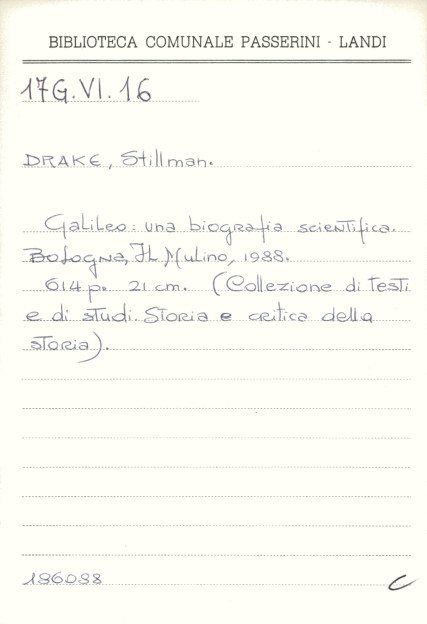 BIBLIOTECA COMUNALE PASSERINI - LANDI
17G.VI.16
DRAKE, Stillman.
Galileo: una biografia scientifica.
Bologna, Il Mulino, 1988.
614 p. 21 cm. (Collezione di testi
e di studi. Storia e critica della
storia).
186088
C